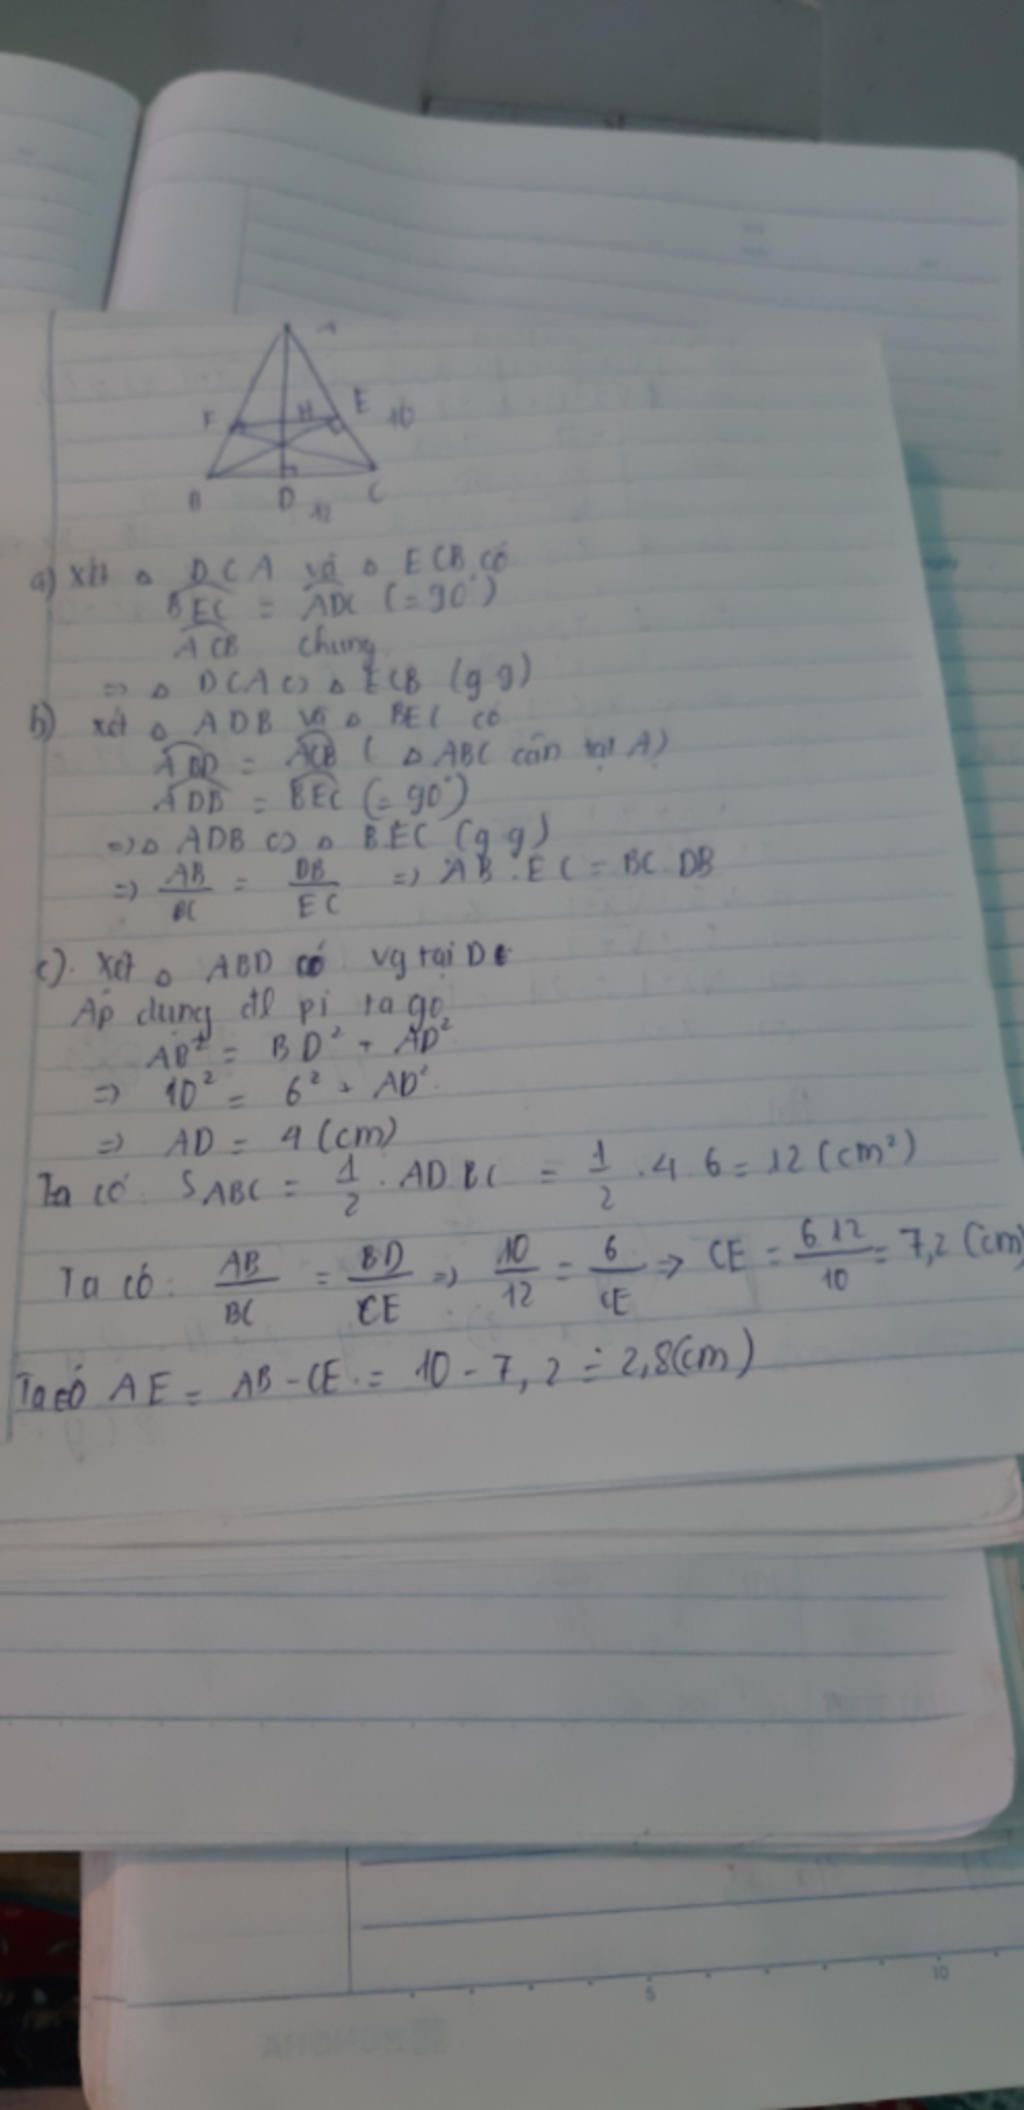 A
F H E 10
B D C
12
a) xét △ DCA và △ ECB có
BEC = ADC (= 90°)
ACB chung
=> △ DCA ∽ △ ECB (g g)
b) xét △ ADB và △ BEC có
ABD = ACB ( △ ABC cân tại A)
ADB = BEC (= 90°)
=> △ ADB ∽ △ BEC (g g)
=> AB/BC = DB/EC => AB . EC = BC . DB
c). Xét △ ABD có vg tại D
Áp dụng đl pi ta go
AB² = BD² + AD²
=> 10² = 6² + AD².
=> AD = 4 (cm)
Ta có: S ABC = 1/2 . AD BC = 1/2 . 4 6 = 12 (cm²)
Ta có: AB/BC = BD/CE => 10/12 = 6/CE => CE = 6.12/10 = 7,2 (cm)
Ta có AE = AB - CE = 10 - 7,2 = 2,8(cm)
5 10
HONGHA